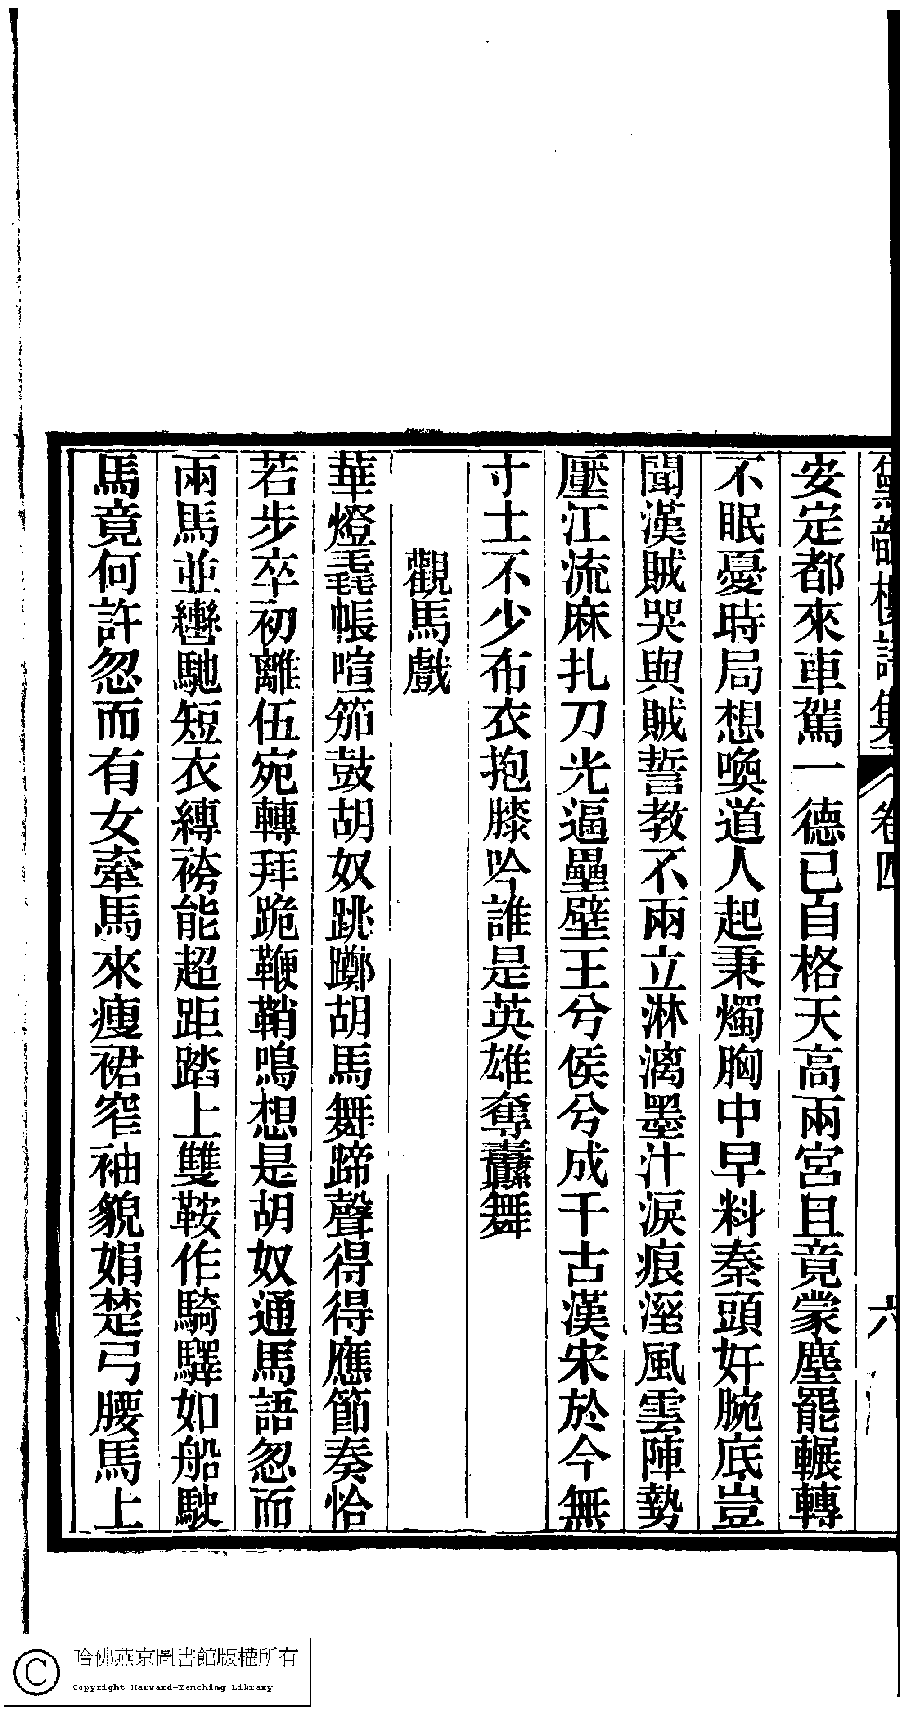 黛韻樓詩集 卷四 六
安定都來車駕一德已自格天高兩宮且竟蒙塵罷輾轉
不眠憂時局想喚道人起秉燭胸中早料秦頭奸腕底豈
聞漢賊哭與賊誓教不兩立淋漓墨汁淚痕溼風雲陣勢
壓江流麻扎刀光逼壘壁王兮侯兮成千古漢宋於今無
寸土不少布衣抱膝吟誰是英雄奪纛舞
觀馬戲
華燈毳帳喧笳鼓胡奴跳躑胡馬舞蹄聲得得應節奏恰
若步卒初離伍宛轉拜跪鞭鞘鳴想是胡奴通馬語忽而
兩馬並轡馳短衣縛袴能超距踏上雙鞍作騎驛如船駛
馬竟何許忽而有女牽馬來瘦裙窄袖貌娟楚弓腰馬上
哈佛燕京圖書館版權所有
Copyright Harvard-Yenching Library